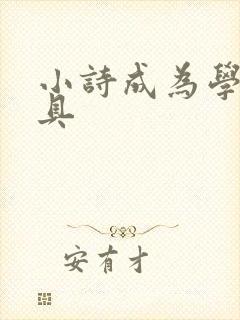 小詩成為學
具
安有才